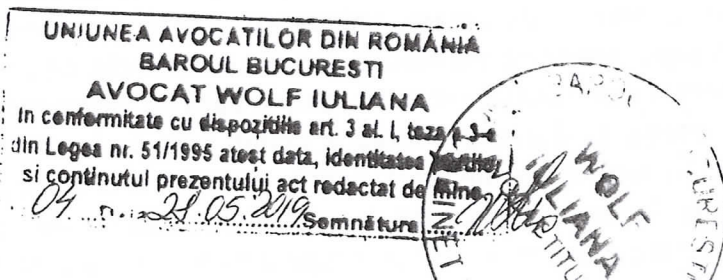 UNIUNEA AVOCATILOR DIN ROMÂNIA
BAROUL BUCURESTI
AVOCAT WOLF IULIANA
In conformitate cu dispozitiile art. 3 al. I, teza a 3-a
din Legea nr. 51/1995 atest data, identitatea
si continutul prezentului act redactat de mine.
04 28.05.2019 Semnătura
WOLF
IULIANA